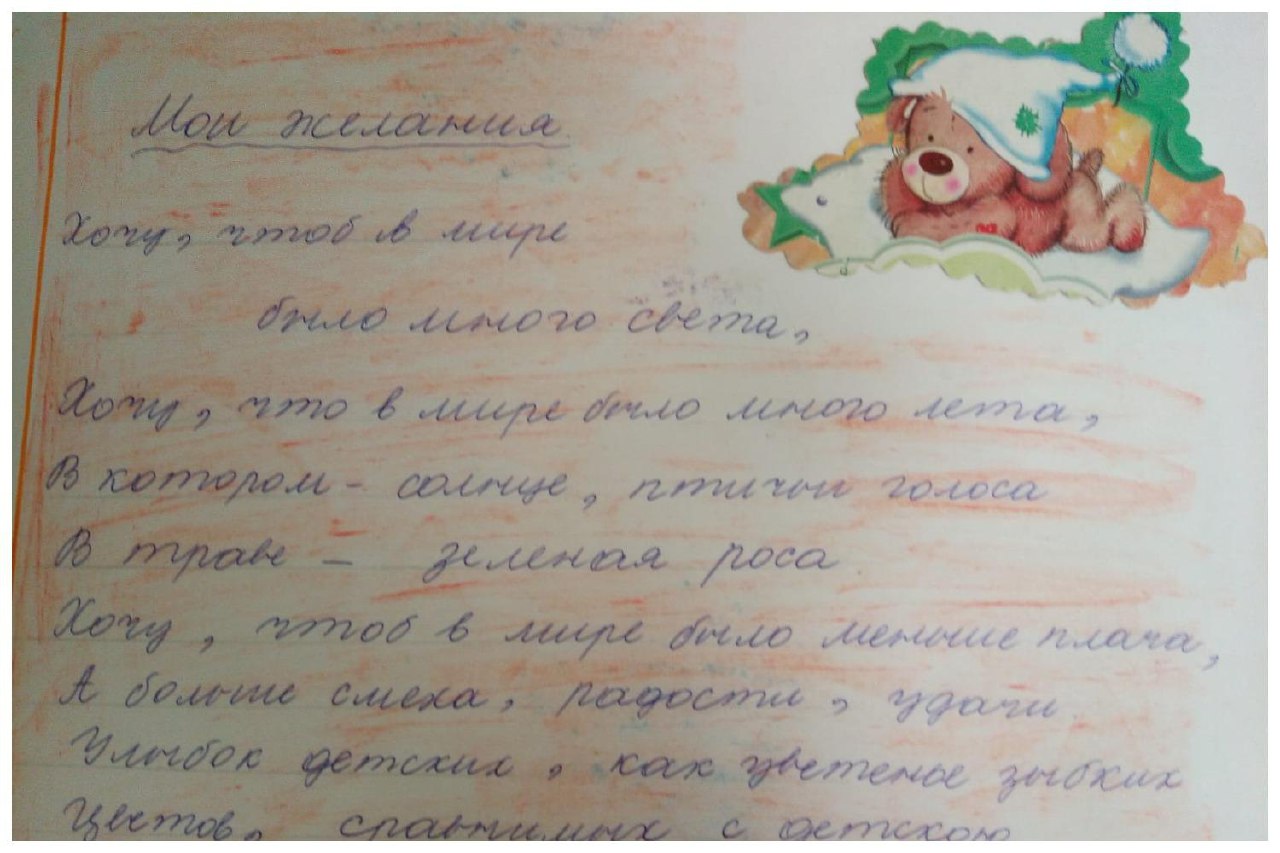 Мои желания
Хочу, чтоб в мире
было много света,
Хочу, что в мире было много лета,
В котором - солнце, птичьи голоса
В траве - зеленая роса
Хочу, чтоб в мире было меньше плача,
А больше смеха, радости, удачи
Улыбок детских, как цветенье зыбких
Цветов, сравнимых с детскою